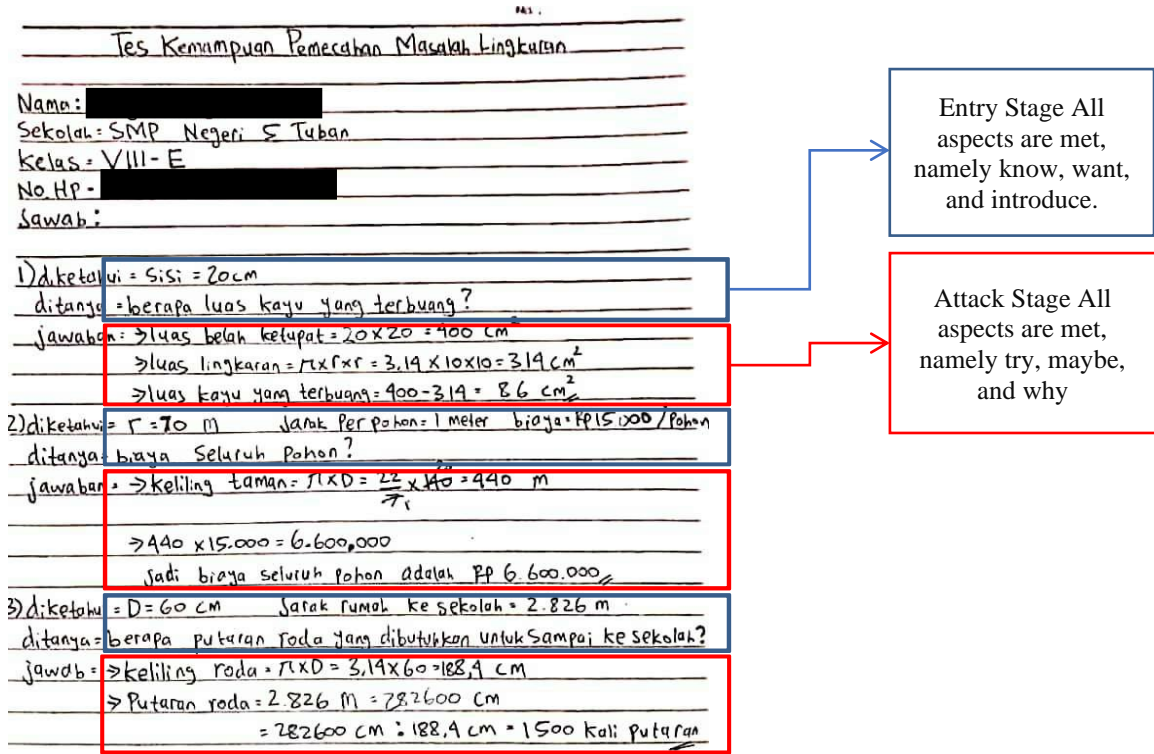 Tes Kemampuan Pemecahan Masalah Lingkaran
Nama:
Sekolah = SMP Negeri 5 Tuban
Kelas = VIII - E
No. HP -
Jawab :
1) diketahui = Sisi = 20 cm
ditanya = berapa luas kayu yang terbuang?
jawaban = → luas belah ketupat = 20 x 20 = 400 cm²
→ luas lingkaran = π x r x r = 3,14 x 10 x 10 = 314 cm²
→ luas kayu yang terbuang = 400 - 314 = 86 cm²
2) diketahui = r = 70 m Jarak Per pohon = 1 meter biaya = Rp 15.000 / Pohon
ditanya = biaya Seluruh Pohon?
jawaban = → Keliling taman = π x D = 22/7 x 140 = 440 m
→ 440 x 15.000 = 6.600,000
Jadi biaya seluruh pohon adalah Rp 6.600.000
3) diketahui = D = 60 cm Jarak rumah ke sekolah = 2.826 m
ditanya = berapa putaran roda yang dibutuhkan untuk Sampai ke sekolah?
jawab = → Keliling roda = π x D = 3,14 x 60 = 188,4 cm
→ Putaran roda = 2.826 m = 282600 cm
= 282600 cm : 188,4 cm = 1500 kali putaran
Entry Stage All
aspects are met,
namely know, want,
and introduce.
Attack Stage All
aspects are met,
namely try, maybe,
and why